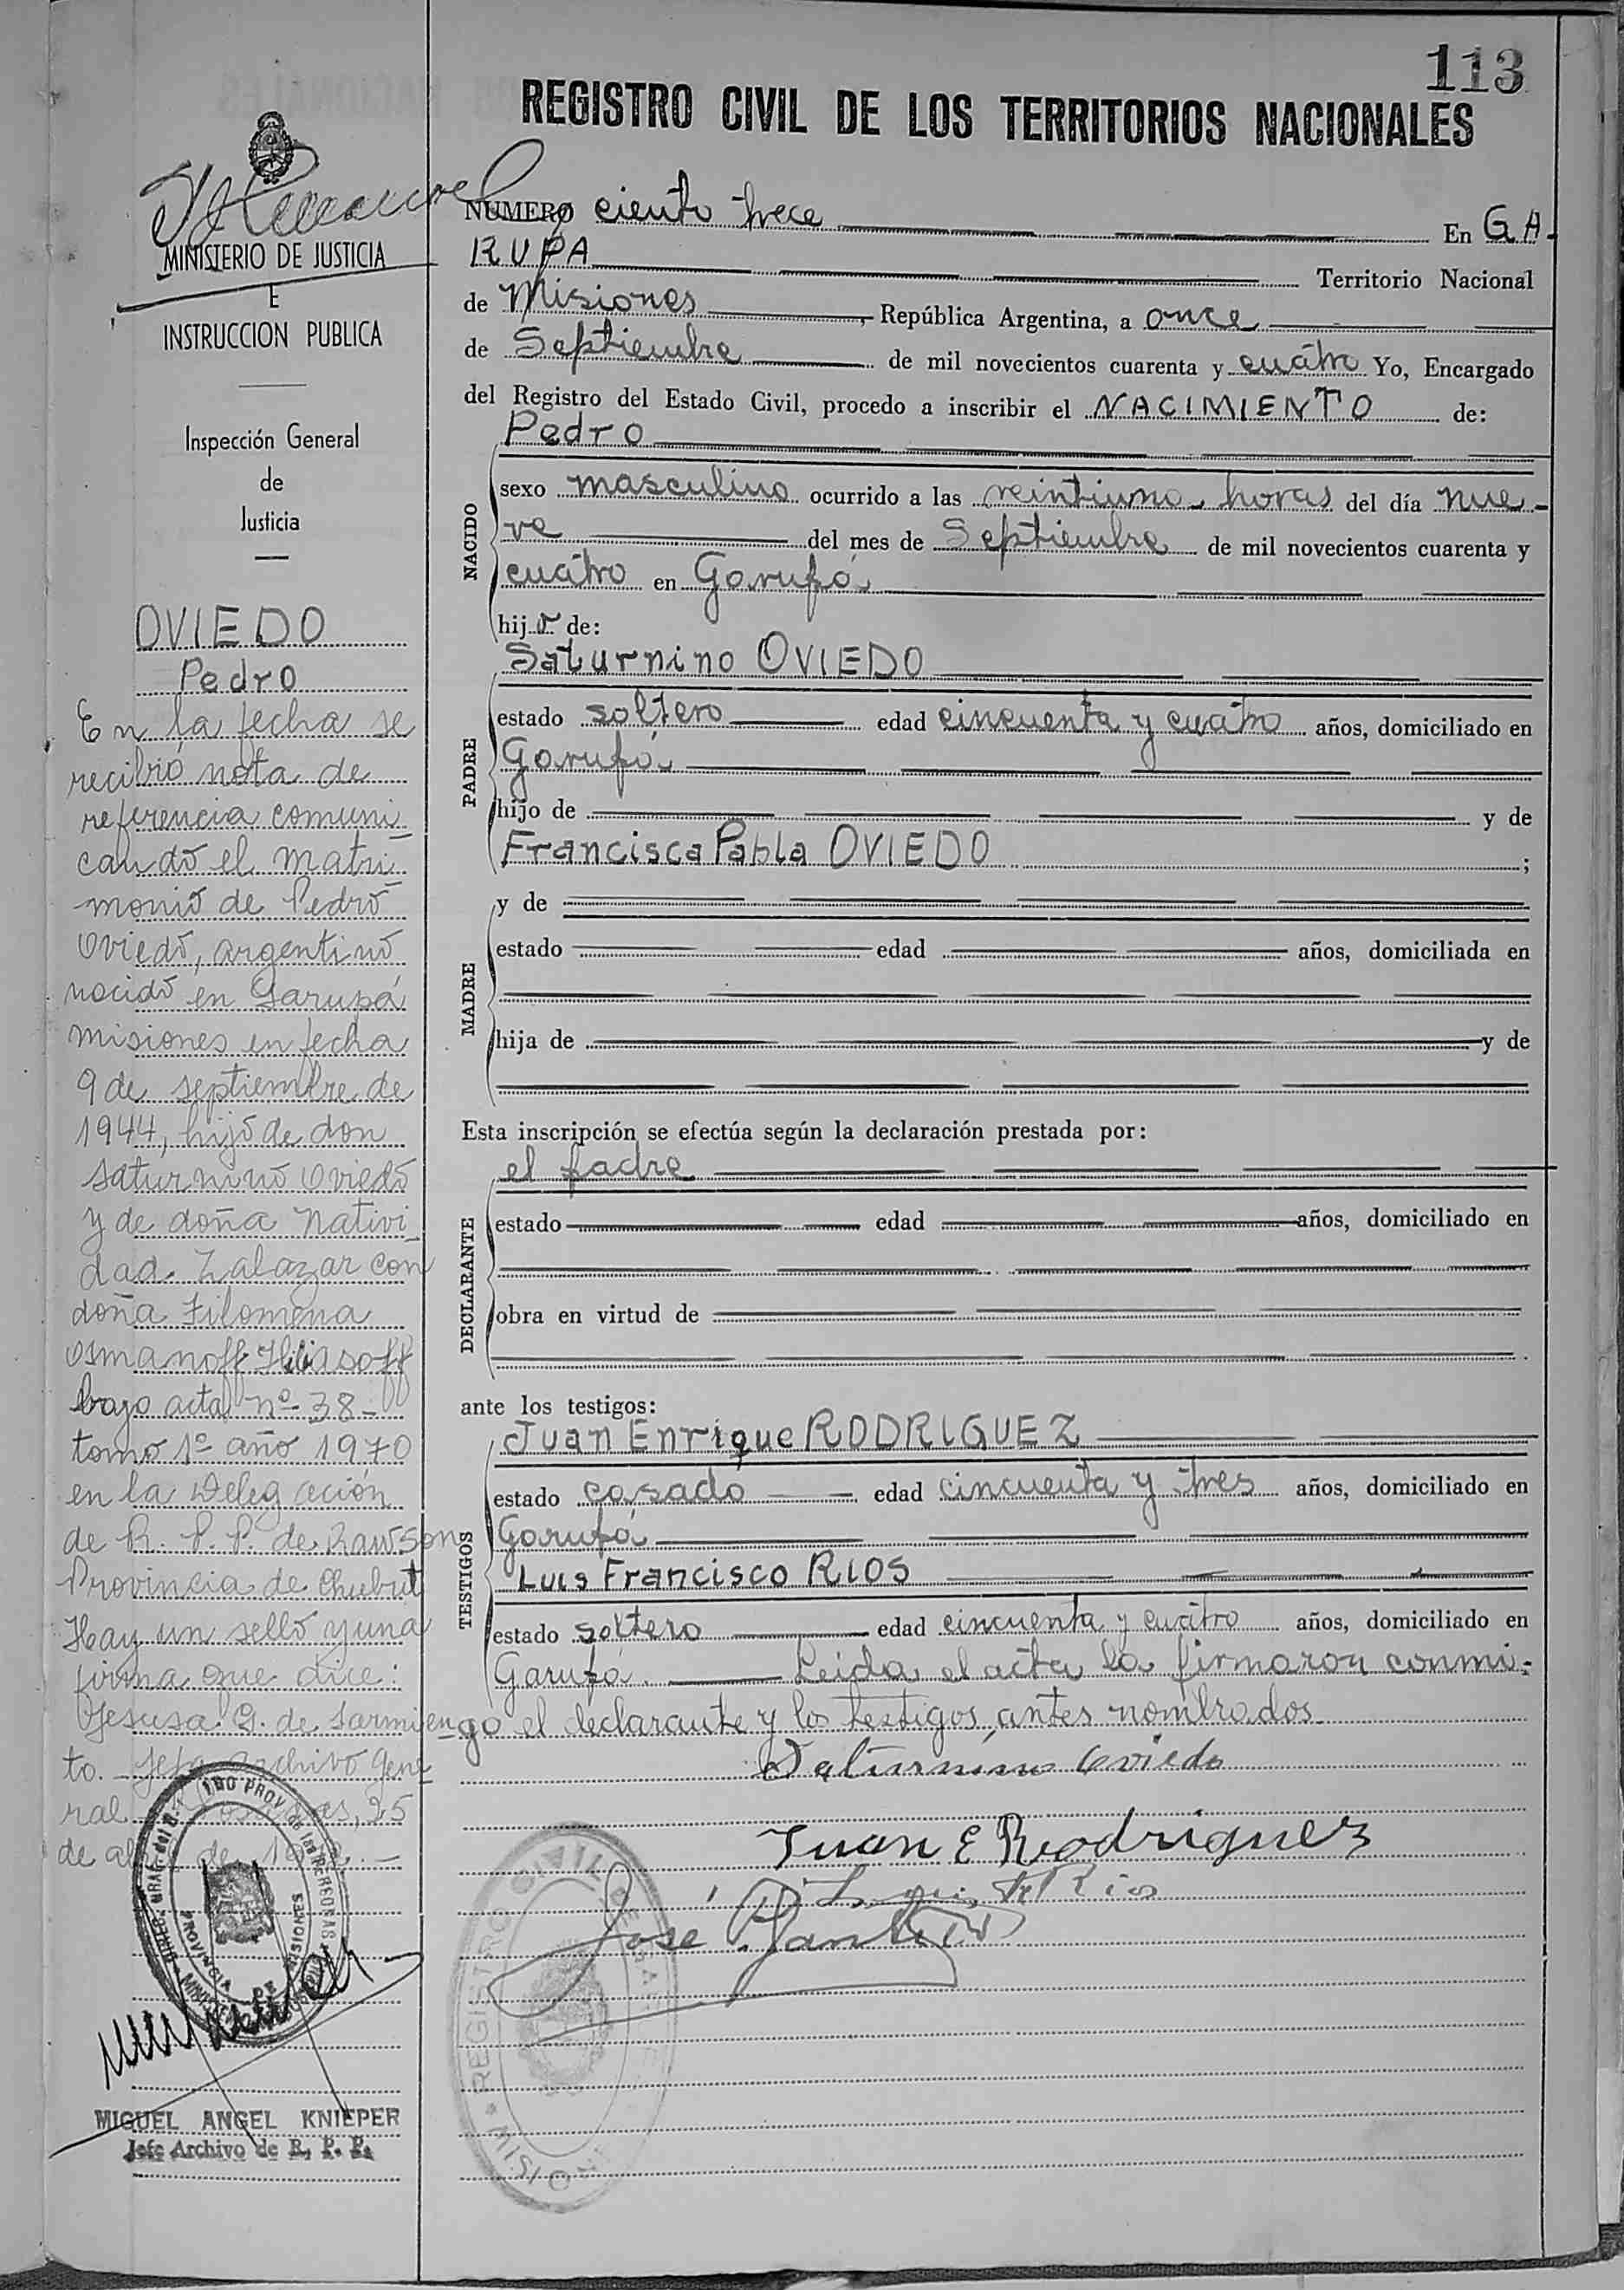 113
REGISTRO CIVIL DE LOS TERRITORIOS NACIONALES
MINISTERIO DE JUSTICIA
E
INSTRUCCION PUBLICA
Inspección General
de
Justicia
OVIEDO
Pedro
En la fecha se
recibió nota de
referencia comuni
cando el matri
monio de Pedro
Oviedo, argentino
nacido en Garupá
misiones en fecha
9 de septiembre de
1944, hijo de don
Saturnino Oviedo
y de doña Nativi
dad Zalazar con
doña Filomena
Osmanoff
bajo acta nº 38-
tomo 1º año 1970
en la Delegación
de R. P. P. de Rawson
Provincia de Chubut
Hay un sello y una
firma que dice:
Jesusa G. de Sarmien
to. Jefa Archivo Gene
ral
PROVINCIA DE MISIONES
MIGUEL ANGEL KNIEPER
Jefe Archivo de R. P. P.
NUMERO ciento trece En GA-
RUPA Territorio Nacional
de Misiones, República Argentina, a once
de Septiembre de mil novecientos cuarenta y cuatro Yo, Encargado
del Registro del Estado Civil, procedo a inscribir el NACIMIENTO de:
Pedro
NACIDO
sexo masculino ocurrido a las veintiuna horas del día nue-
ve del mes de Septiembre de mil novecientos cuarenta y
cuatro en Garupá
hijo de:
Saturnino OVIEDO
PADRE
estado soltero edad cincuenta y cuatro años, domiciliado en
Garupá
hijo de y de
Francisca Pabla OVIEDO ;
y de
MADRE
estado edad años, domiciliada en
hija de y de
Esta inscripción se efectúa según la declaración prestada por:
el padre
DECLARANTE
estado edad años, domiciliado en
obra en virtud de
ante los testigos:
Juan Enrique RODRIGUEZ
TESTIGOS
estado casado edad cincuenta y tres años, domiciliado en
Garupá
Luis Francisco RIOS
estado soltero edad cincuenta y cuatro años, domiciliado en
Garupá. Leída el acta la firmaron conmi-
go el declarante y los testigos antes nombrados
Saturnino Oviedo
Juan E Rodriguez
Luis F Rios
José
REGISTRO CIVIL